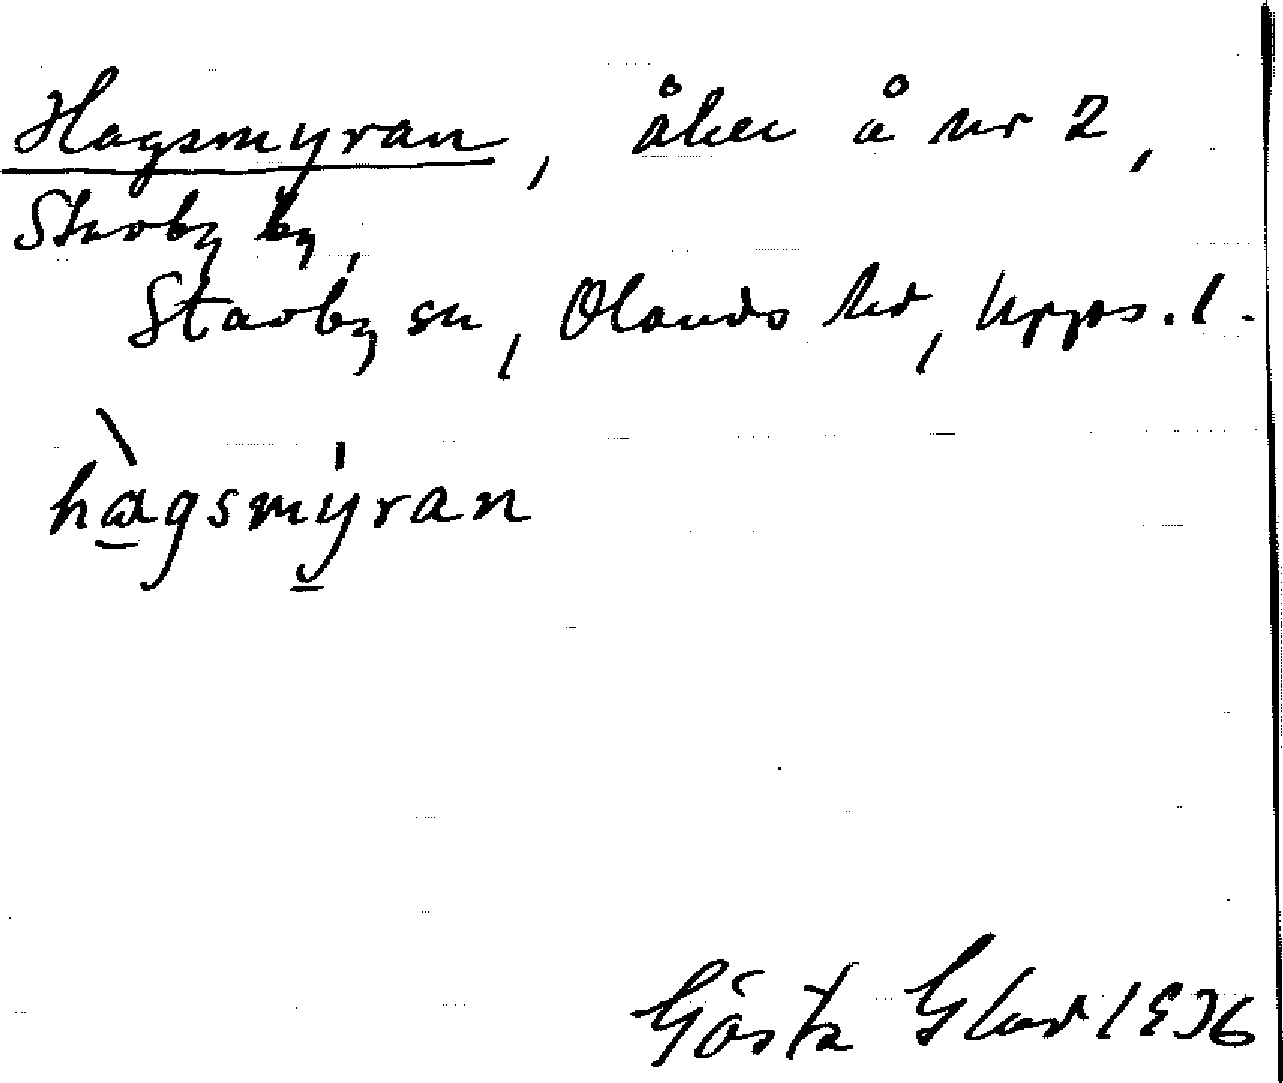 Hagsmyran, åker å nr 2,
Stavby by,
Stavby sn, Olands hd, Upps. l.
hagsmyran
Gösta Glad 1936